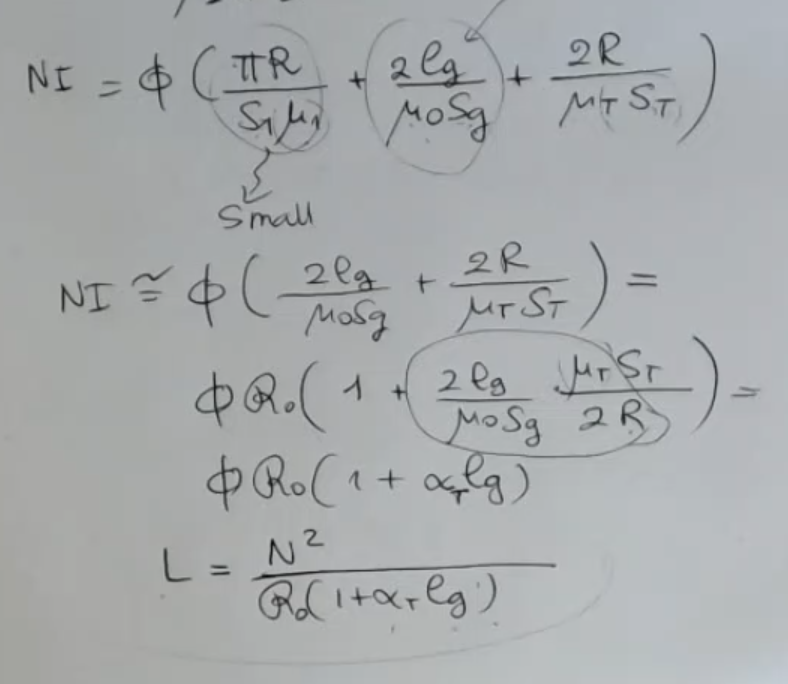 NI = ϕ ( πR / S₁μ₁ + 2ℓg / μ₀Sg + 2R / μ_T S_T )
Small
NI ≅ ϕ ( 2ℓg / μ₀Sg + 2R / μ_T S_T ) =
ϕ R₀ ( 1 + 2ℓg / μ₀Sg μ_T S_T / 2R ) =
ϕ R₀ ( 1 + α_T ℓg )
L = N² / R₀ ( 1 + α_T ℓg )